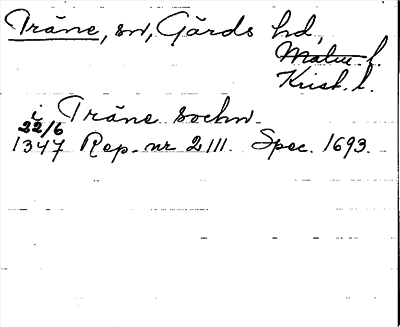 Träne, sn, Gärds hd,
Malm. l.
Krist. l.
i Träne sochn.
22/6
1347 Rep. nr 2111. Spec. 1693.